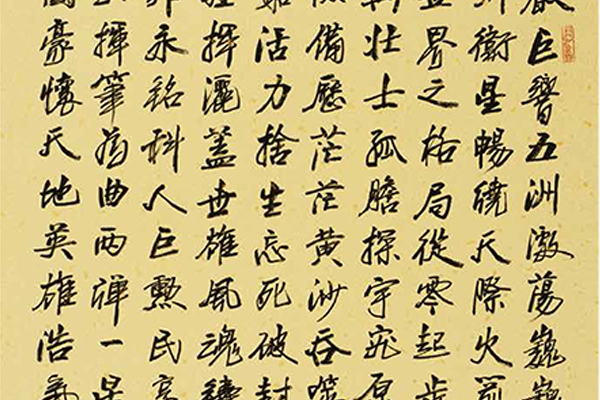 巨響五洲激蕩巍巍
衛星暢繞天際火箭
界之格局從零起步
壯士孤膽探宇原
備歷茫茫黃沙吞噬
活力捨生忘死破封
揮灑蓋世雄風魂
永銘科人巨勳民
揮筆為曲兩彈一星
豪懷天地英雄浩氣